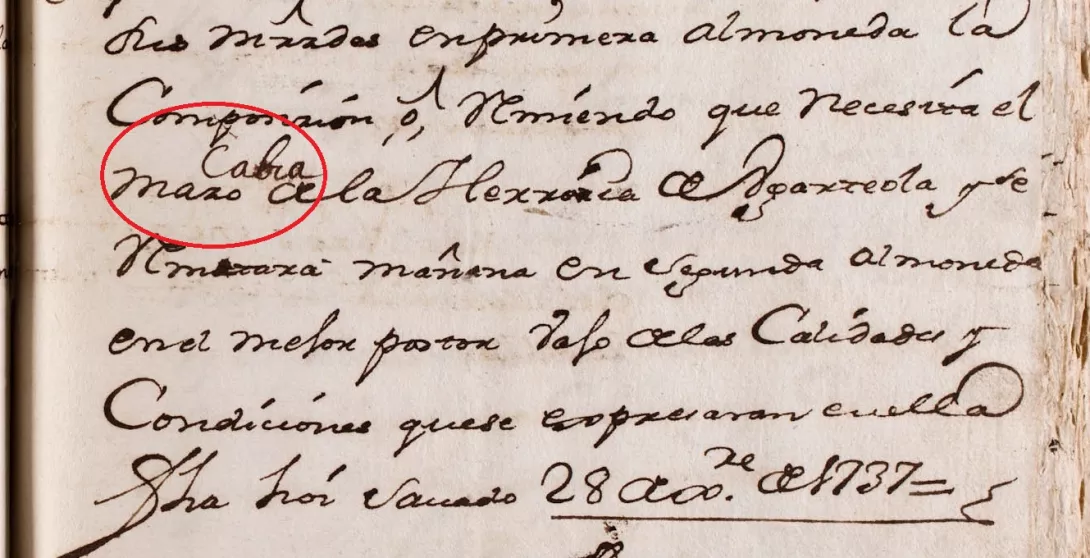 en primera almoneda la
Composizión, ó, Rmiendo que necesita el
Cabia
mazo de la Herrería de Ygarteola y se
Rmatara mañana en segunda almoneda
en el mejor postor vajo de las Calidades y
Condiciones que se expresaran en ella
fha hoi savado 28 de xre. de 1737=